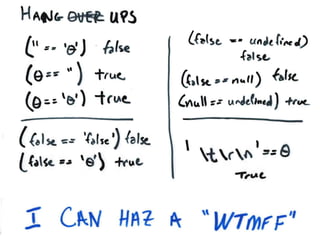 HANG OVER UPS
('' == '0') false
(0 == '') true
(0 == '0') true
(false == 'false') false
(false == '0') true
(false == undefined)
false
(false == null) false
(null == undefined) true
' \t\r\n' == 0
TRUE
I CAN HAZ A "WTMFF"